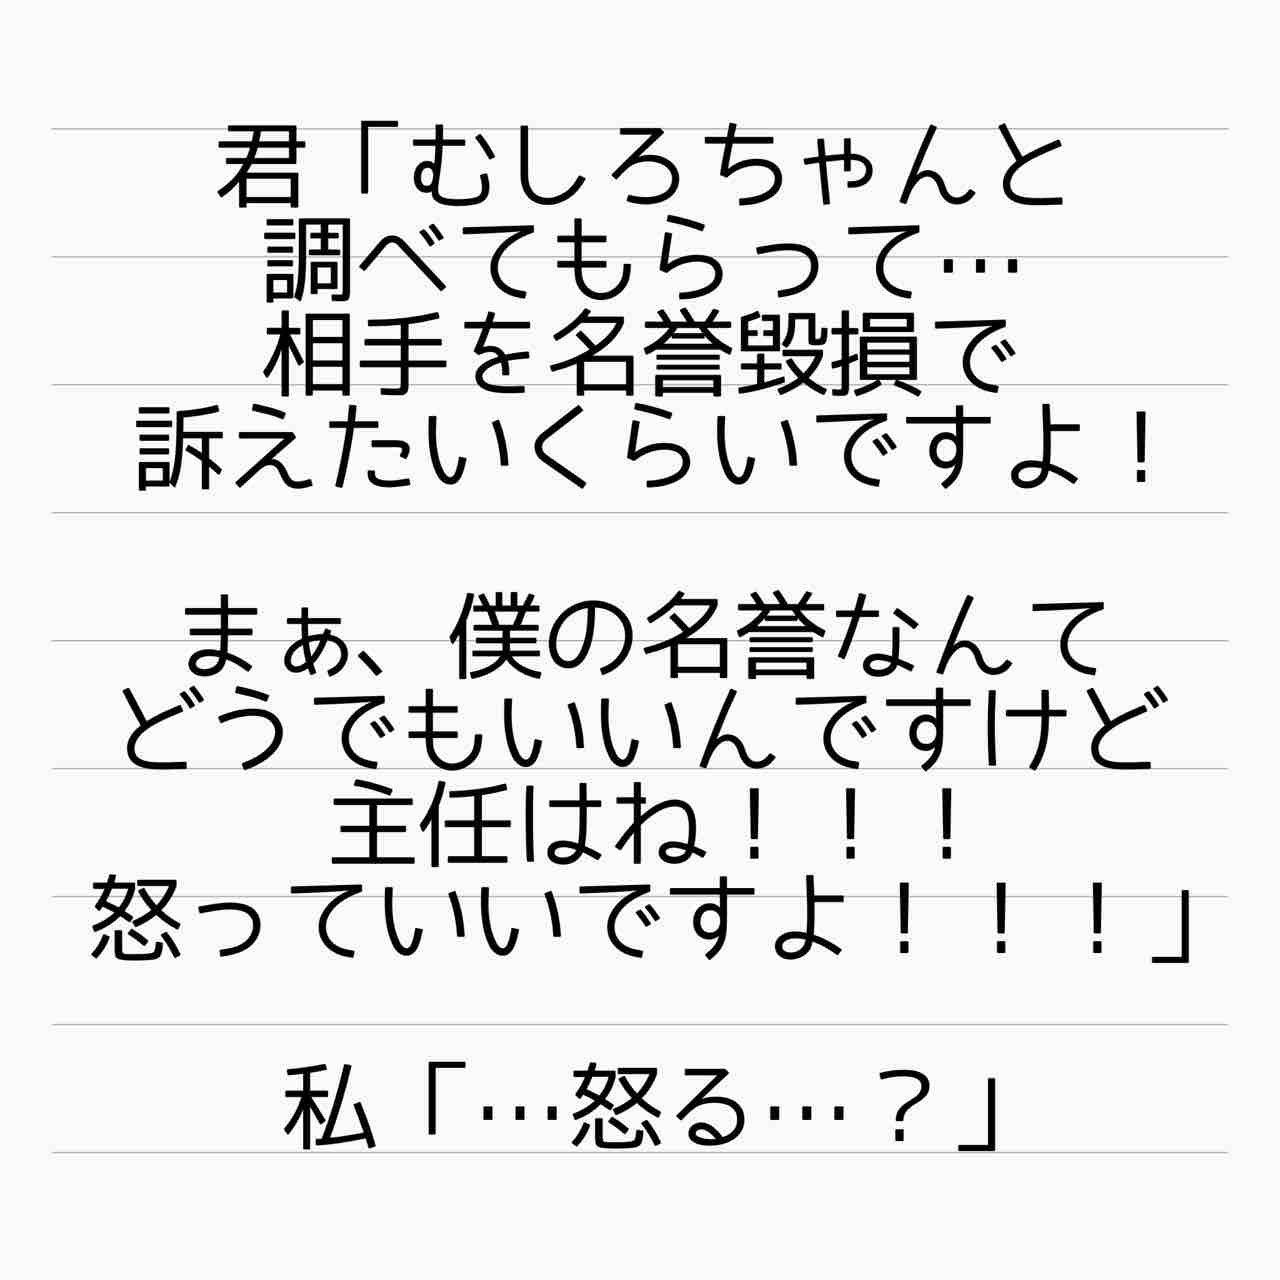 君「むしろちゃんと
調べてもらって…
相手を名誉毀損で
訴えたいくらいですよ！
まぁ、僕の名誉なんて
どうでもいいんですけど
主任はね！！！
怒っていいですよ！！！」
私「…怒る…？」